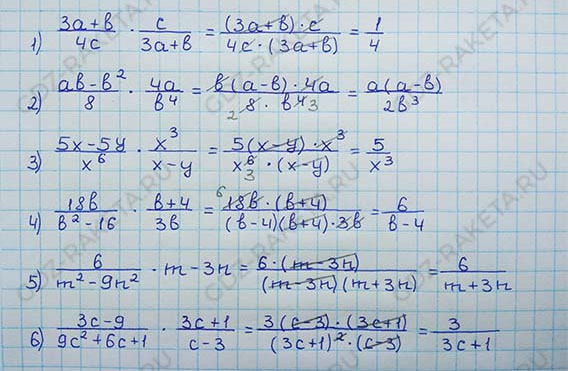 1) (3a+в)/(4c) · c/(3a+в) = ((3a+в)·c)/(4c·(3a+в)) = 1/4
2) (aв-в²)/8 · 4a/в⁴ = (в(a-в)·4a)/(8·в⁴) 2 3 = (a(a-в))/(2в³)
3) (5x-5y)/x⁶ · x³/(x-y) = (5(x-y)·x³)/(x⁶·(x-y)) 3 = 5/x³
4) 18в/(в²-16) · (в+4)/(3в) = 6 (18в·(в+4))/((в-4)(в+4)·3в) = 6/(в-4)
5) 6/(m²-9n²) · m-3n = (6·(m-3n))/((m-3n)(m+3n)) = 6/(m+3n)
6) (3c-9)/(9c²+6c+1) · (3c+1)/(c-3) = (3(c-3)·(3c+1))/((3c+1)²·(c-3)) = 3/(3c+1)
GDZ-RAKETA.RU